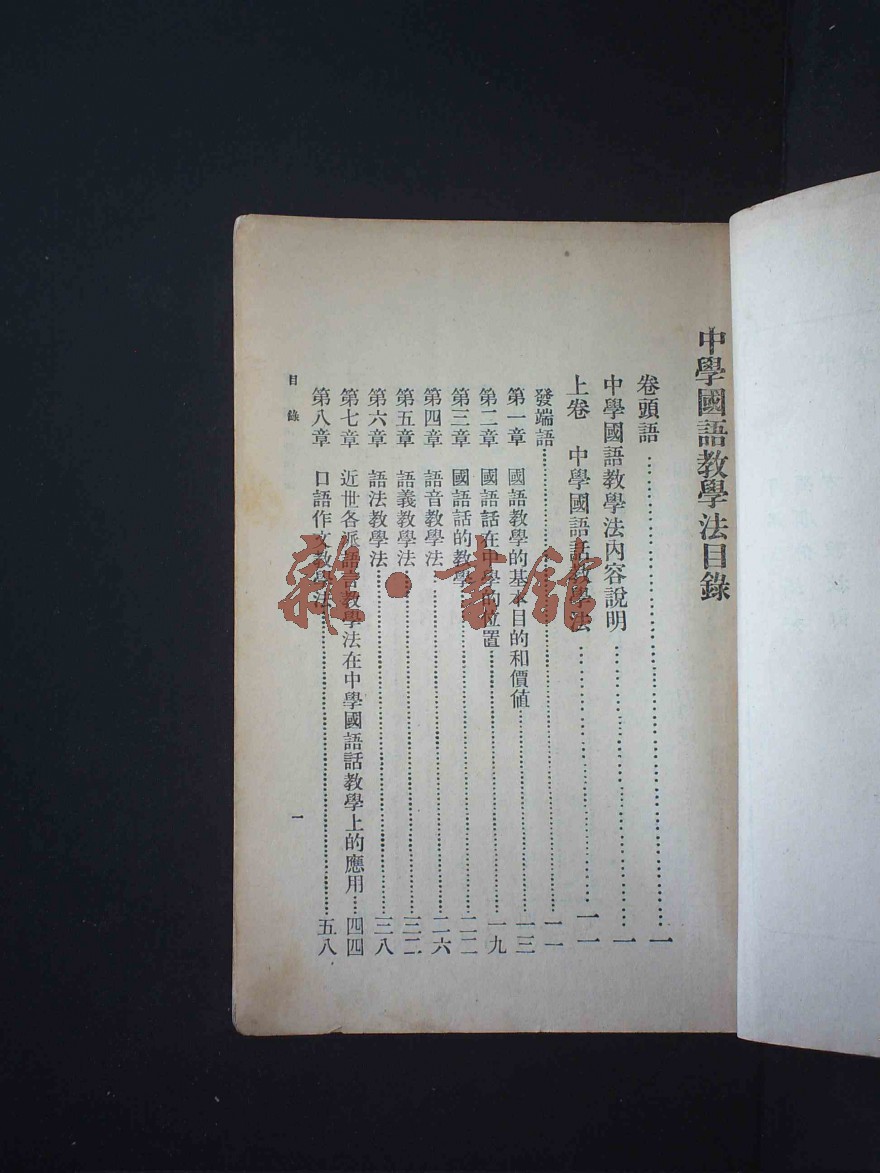 中學國語教學法目錄
卷頭語……………一
中學國語教學法內容說明……………一
上卷 中學國語話教學法……………一一
發端語……………一一
第一章 國語教學的基本目的和價值……………一三
第二章 國語話在中學的位置……………一九
第三章 國語話的教學……………二二
第四章 語音教學法……………二六
第五章 語義教學法……………三二
第六章 語法教學法……………三八
第七章 近世各派語言教學法在中學國語話教學上的應用……四四
第八章 口語作文教學法……………五八
目錄
一
雜·書館